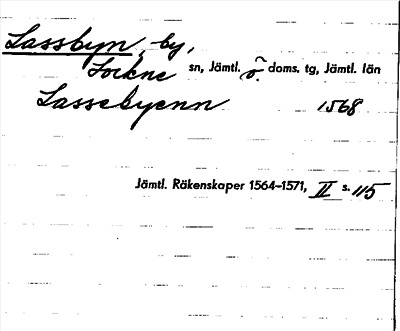 Lassbyn, by,
Lockne sn, Jämtl. ö. doms. tg, Jämtl. län
Lassebyenn 1568
Jämtl. Räkenskaper 1564-1571, II s. 115